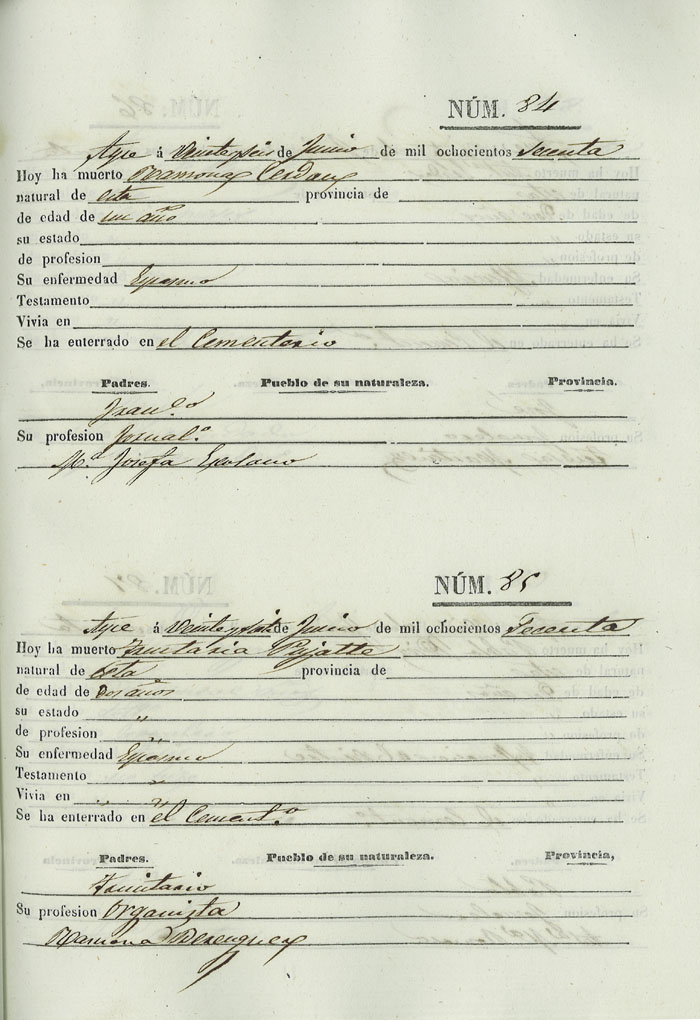 NÚM. 84
Aspe á Veinte y seis de Junio de mil ochocientos Secenta
Hoy ha muerto Ramona Cerdan
natural de esta provincia de
de edad de un año
su estado
de profesion
Su enfermedad Espasmo
Testamento
Vivia en
Se ha enterrado en el Cementerio
Padres. Pueblo de su naturaleza. Provincia.
Fran.co
Su profesion Jornal.o
M.a Josefa Escolano
NÚM. 85
Aspe á Veinte y siete de Junio de mil ochocientos Secenta
Hoy ha muerto
natural de esta provincia de
de edad de Dos años
su estado „
de profesion „
Su enfermedad Espasmo
Testamento „
Vivia en „ „
Se ha enterrado en el Cement.o
Padres. Pueblo de su naturaleza. Provincia,
Su profesion Organista
Ramona Berenguer